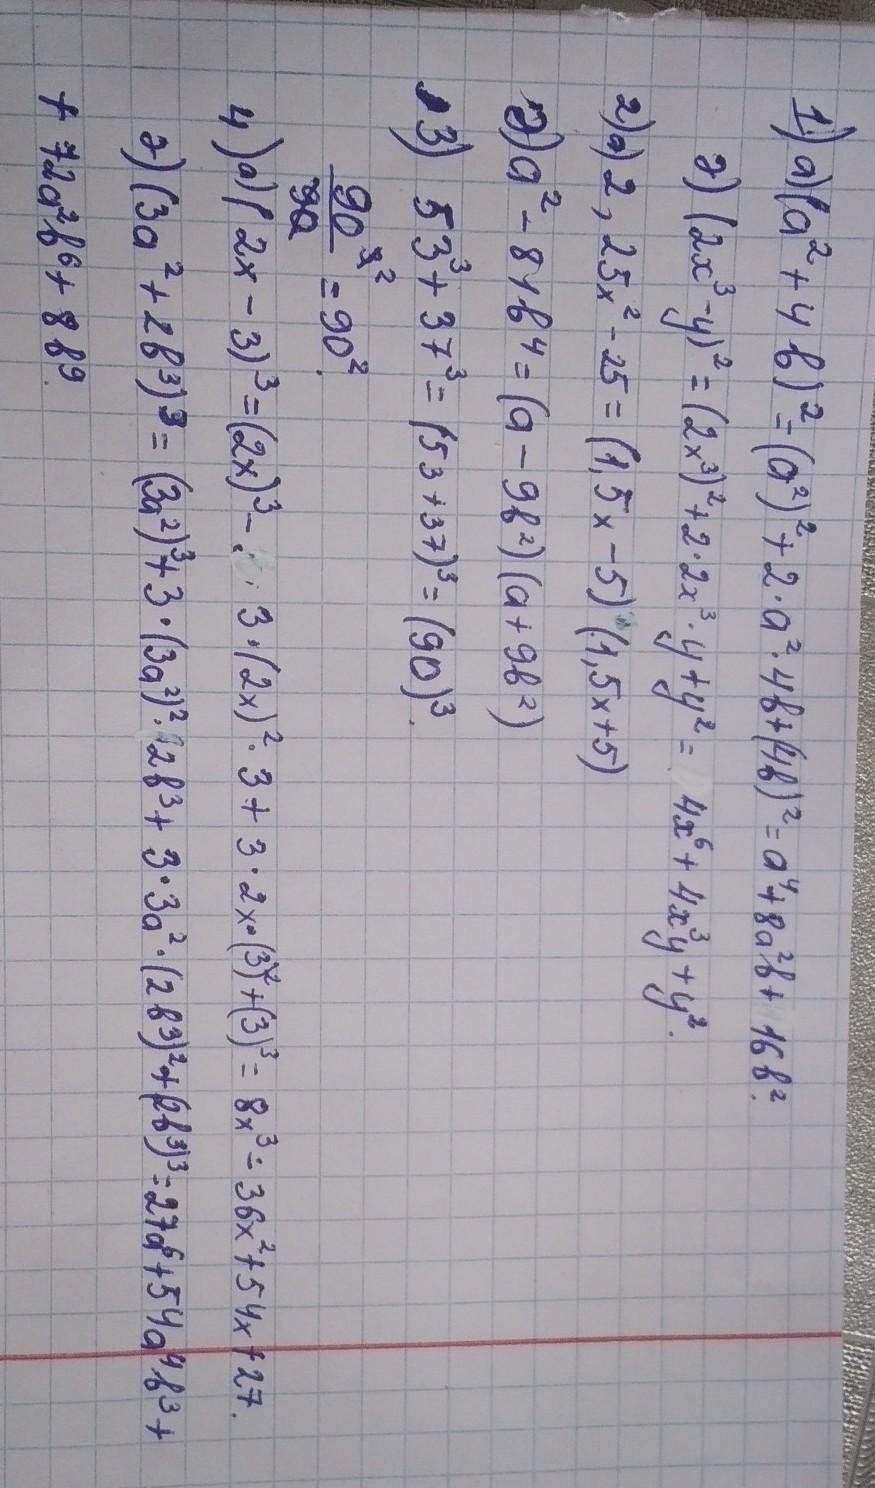 1) а) (a² + 4b)² = (a²)² + 2·a²·4b + (4b)² = a⁴ + 8a²b + 16b².
г) (2x³ - y)² = (2x³)² + 2·2x³·y + y² = 4x⁶ + 4x³y + y².
2) а) 2,25x² - 25 = (1,5x - 5) (1,5x + 5)
г) a² - 81b⁴ = (a - 9b²) (a + 9b²)
3) 53³ + 37³ = (53 + 37)³ = (90)³.
90² = 90².
90
4) а) (2x - 3)³ = (2x)³ - 3·(2x)²·3 + 3·2x·(3)² + (3)³ = 8x³ - 36x² + 54x + 27.
г) (3a² + 2b³)³ = (3a²)³ + 3·(3a²)²·2b³ + 3·3a²·(2b³)² + (2b³)³ = 27a⁶ + 54a⁴b³ +
+ 72a²b⁶ + 8b⁹.